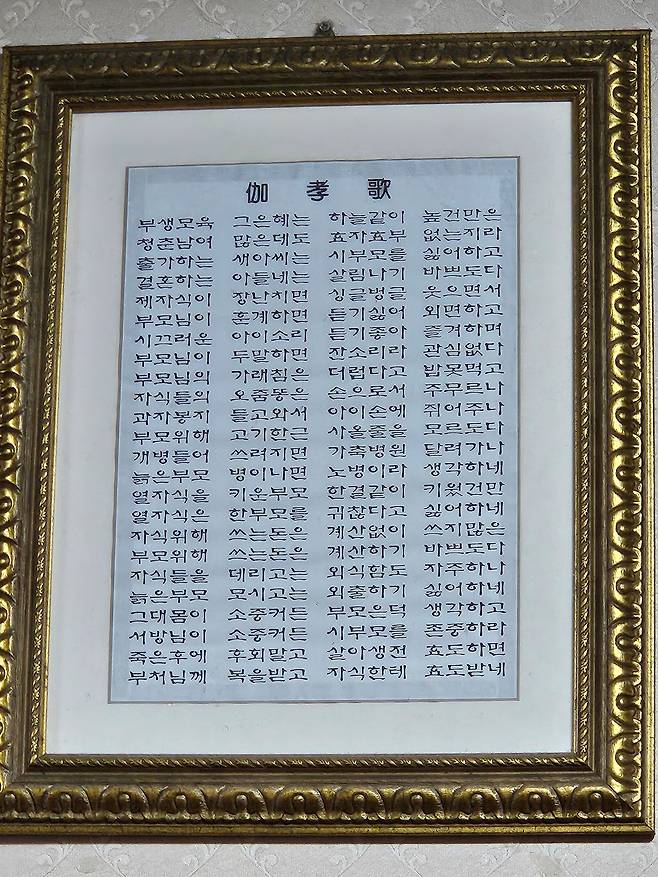 伽孝歌
부생모육 그은혜는 하늘같이 높건만은
청춘남여 많은데도 효자효부 없는지라
출가하는 새아씨는 시부모를 싫어하고
결혼하는 아들네는 살림나기 바쁘도다
제자식이 장난치면 싱글벙글 웃으면서
부모님이 훈계하면 듣기싫어 외면하고
시끄러운 아이소리 듣기좋아 즐겨하며
부모님이 두말하면 잔소리라 관심없다
부모님의 가래침은 더럽다고 밥못먹고
자식들의 오줌똥은 손으로서 주무르나
과자봉지 들고와서 아이손에 쥐어주나
부모위해 고기한근 사올줄을 모르도다
개병들어 쓰러지면 가축병원 달려가나
늙은부모 병이나면 노병이라 생각하네
열자식을 키운부모 한결같이 키웠건만
열자식은 한부모를 귀찮다고 싫어하네
자식위해 쓰는돈은 계산없이 쓰지많은
부모위해 쓰는돈은 계산하기 바쁘도다
자식들을 데리고는 외식함도 자주하나
늙은부모 모시고는 외출하기 싫어하네
그대몸이 소중커든 부모은덕 생각하고
서방님이 소중커든 시부모를 존중하라
죽은후에 후회말고 살아생전 效도하면
부처님께 복을받고 자식한테 效도받네